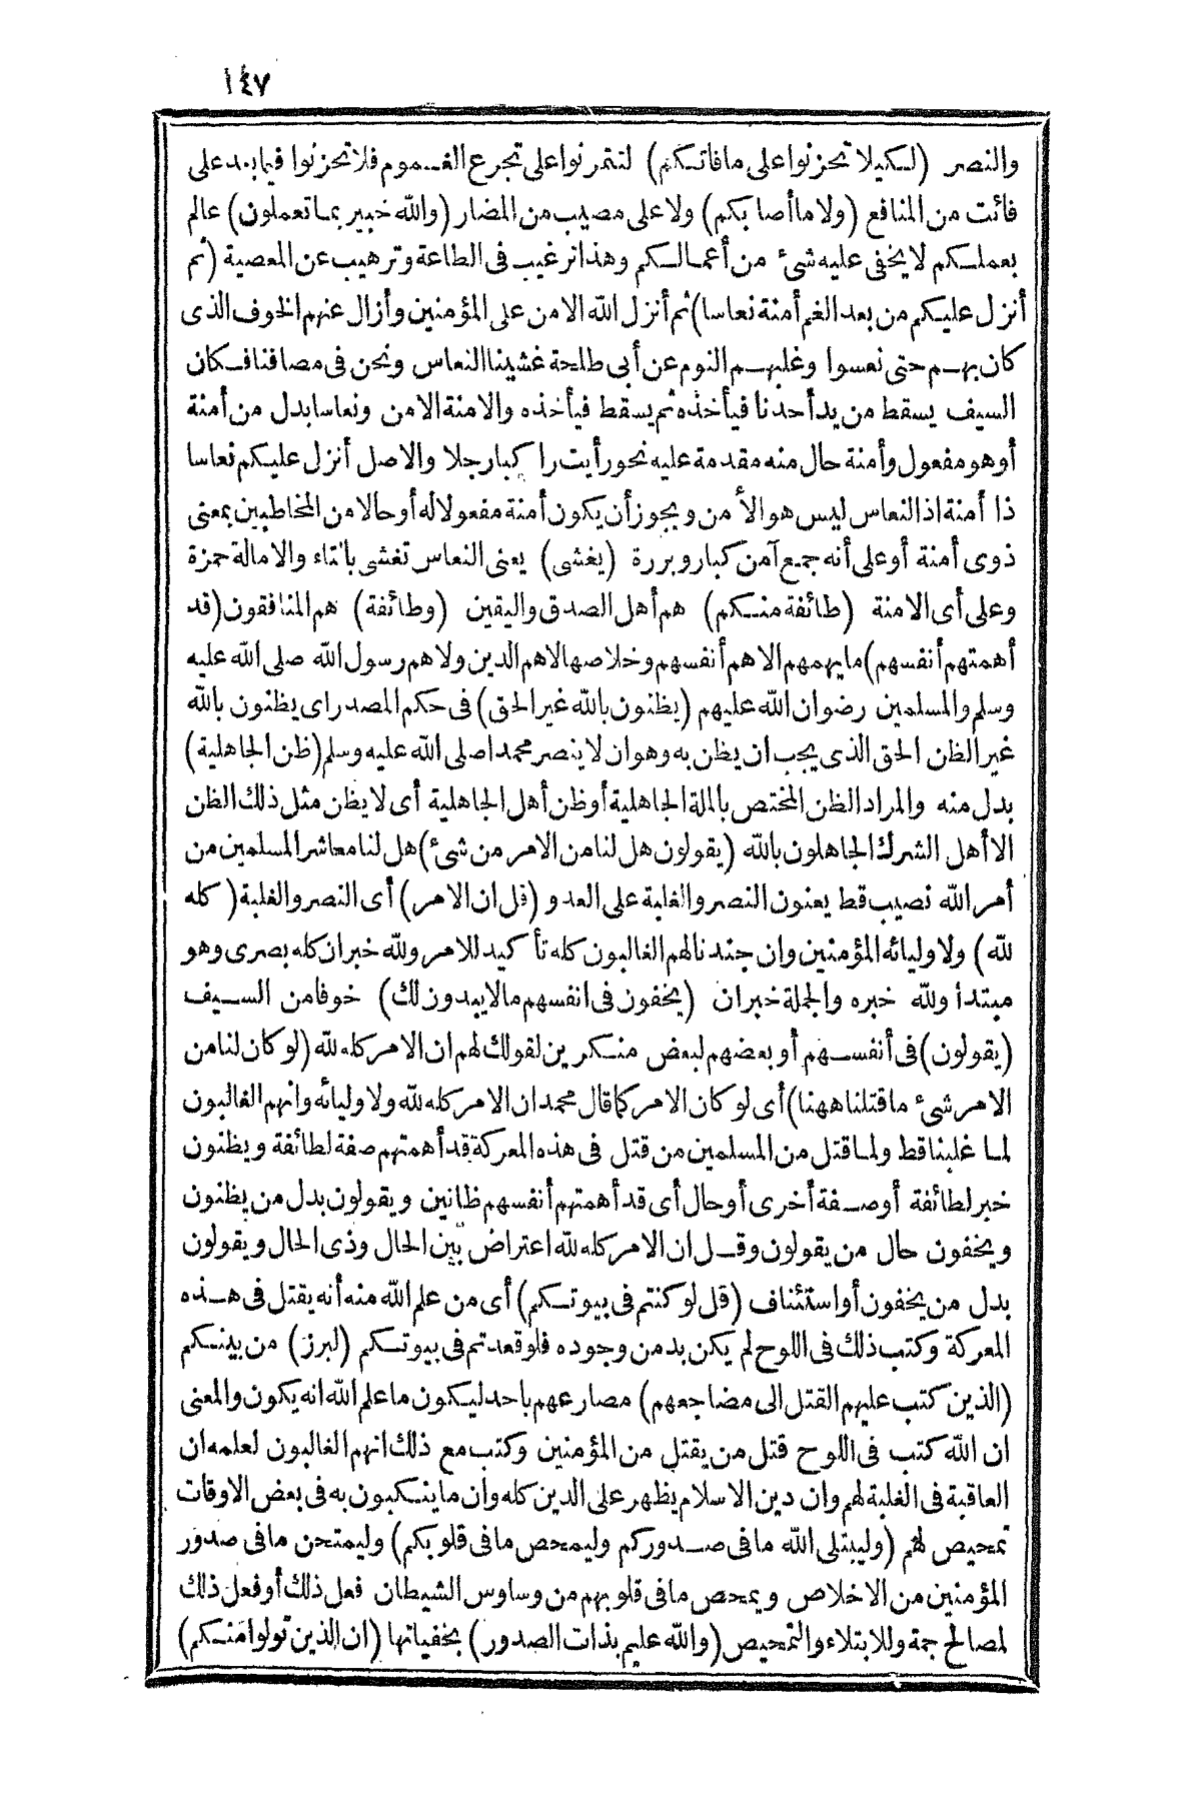 ١٤٧
والنصر (لكيلا تحزنوا على ما فاتكم) لتتمرنوا على تجرع الغموم فلا تحزنوا فيما بعد على
فائت من المنافع (ولا ما أصابكم) ولا على مصيب من المضار (والله خبير بما تعملون) عالم
بعملكم لا يخفى عليه شئ من أعمالكم وهذا ترغيب فى الطاعة وترهيب عن المعصية (ثم
أنزل عليكم من بعد الغم أمنة نعاسا) ثم أنزل الله الامن على المؤمنين وأزال عنهم الخوف الذى
كان بهم حتى نعسوا وغلبهم النوم عن أبى طلحة غشينا النعاس ونحن فى مصافنا فكان
السيف يسقط من يد أحدنا فيأخذه ثم يسقط فيأخذه والامنة الامن ونعاسا بدل من أمنة
أو هو مفعول وأمنة حال منه مقدمة عليه نحو رأيت راكبا رجلا والاصل أنزل عليكم نعاسا
ذا أمنة اذ النعاس ليس هو الأمن ويجوز أن يكون أمنة مفعولا له أو حالا من المخاطبين بمعنى
ذوى أمنة أو على أنه جمع آمن كبار وبررة (يغشى) يعنى النعاس تغشى بالتاء والامالة حمزة
وعلى أى الامنة (طائفة منكم) هم أهل الصدق واليقين (وطائفة) هم المنافقون (قد
أهمتهم أنفسهم) ما يهمهم الا هم أنفسهم وخلاصها لا هم الدين ولا هم رسول الله صلى الله عليه
وسلم والمسلمين رضوان الله عليهم (يظنون بالله غير الحق) فى حكم المصدر اى يظنون بالله
غير الظن الحق الذى يجب ان يظن به وهو ان لا ينصر محمدا صلى الله عليه وسلم (ظن الجاهلية)
بدل منه والمراد الظن المختص بالملة الجاهلية أو ظن أهل الجاهلية أى لا يظن مثل ذلك الظن
الا أهل الشرك الجاهلون بالله (يقولون هل لنا من الامر من شئ) هل لنا معاشر المسلمين من
أمر الله نصيب قط يعنون النصر والغلبة على العدو (قل ان الامر) أى النصر والغلبة (كله
لله) ولاوليائه المؤمنين وان جندنا لهم الغالبون كله تأكيد للامر ولله خبر ان كله بصرى وهو
مبتدأ ولله خبره والجملة خبر ان (يخفون فى انفسهم ما لا يبدون لك) خوفا من السيف
(يقولون) فى أنفسهم أو بعضهم لبعض منكرين لقولك لهم ان الامر كله لله (لو كان لنا من
الامر شئ ما قتلنا ههنا) أى لو كان الامر كما قال محمد ان الامر كله لله ولاوليائه وانهم الغالبون
لما غلبنا قط ولما قتل من المسلمين من قتل فى هذه المعركة قد أهمتهم صفة لطائفة ويظنون
خبر لطائفة أو صفة أخرى أو حال أى قد أهمتهم أنفسهم ظانين ويقولون بدل من يظنون
ويخفون حال من يقولون وقل ان الامر كله لله اعتراض بين الحال وذى الحال ويقولون
بدل من يخفون أو استئناف (قل لو كنتم فى بيوتكم) أى من علم الله منه أنه يقتل فى هذه
المعركة وكتب ذلك فى اللوح لم يكن بد من وجوده فلو قعدتم فى بيوتكم (لبرز) من بينكم
(الذين كتب عليهم القتل الى مضاجعهم) مصارعهم باحد ليكون ما علم الله انه يكون والمعنى
ان الله كتب فى اللوح قتل من يقتل من المؤمنين وكتب مع ذلك انهم الغالبون لعلمه ان
العاقبة فى الغلبة لهم وان دين الاسلام يظهر على الدين كله وان ما ينكبون به فى بعض الاوقات
تمحيص لهم (وليبتلى الله ما فى صدوركم وليمحص ما فى قلوبكم) وليمتحن ما فى صدور
المؤمنين من الاخلاص ويمحص ما فى قلوبهم من وساوس الشيطان فعل ذلك أو فعل ذلك
لمصالح جمة وللابتلاء والتمحيص (والله عليم بذات الصدور) بخفياتها (ان الذين تولوا منكم)